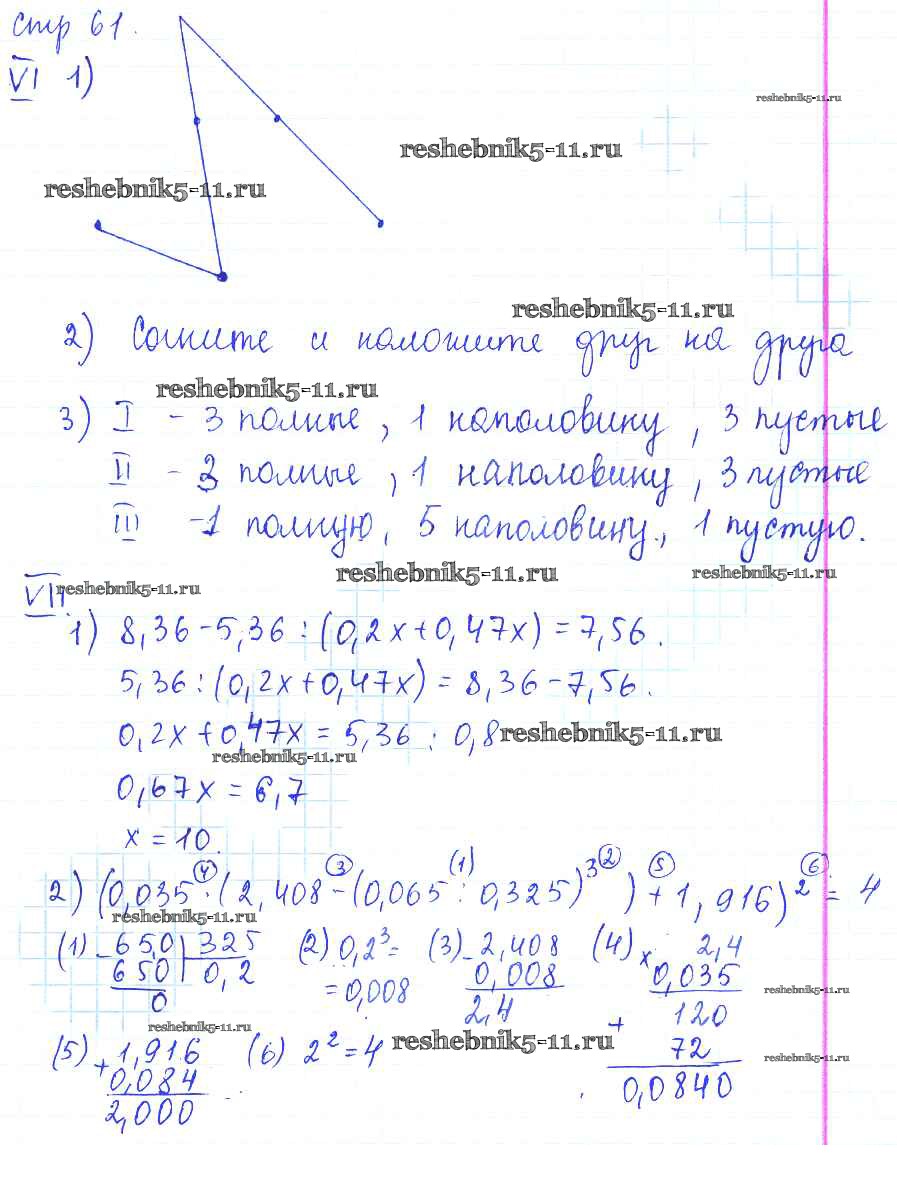 стр 61.
VI 1)
reshebnik5-11.ru
reshebnik5-11.ru
reshebnik5-11.ru
reshebnik5-11.ru
2) Согните и наложите друг на друга
reshebnik5-11.ru
3) I - 3 полные, 1 наполовину, 3 пустые
II - 3 полные, 1 наполовину, 3 пустые
III - 1 полную, 5 наполовину, 1 пустую.
reshebnik5-11.ru
reshebnik5-11.ru
VII. reshebnik5-11.ru
1) 8,36 - 5,36 : (0,2x + 0,47x) = 7,56.
5,36 : (0,2x + 0,47x) = 8,36 - 7,56.
0,2x + 0,47x = 5,36 : 0,8
reshebnik5-11.ru
reshebnik5-11.ru
0,67x = 6,7
x = 10.
4 3 (1) 2 5 6
2) (0,035 · (2,408 - (0,065 : 0,325)³) + 1,916)² = 4
reshebnik5-11.ru
(1) - 65,0 | 325 (2) 0,2³ = (3) - 2,408 (4) x 2,4
650 | 0,2 = 0,008 0,008 0,035
0 2,4 120
reshebnik5-11.ru
reshebnik5-11.ru
(5) + 1,916 (6) 2² = 4 + 72
reshebnik5-11.ru
reshebnik5-11.ru
0,084 0,0840
2,000